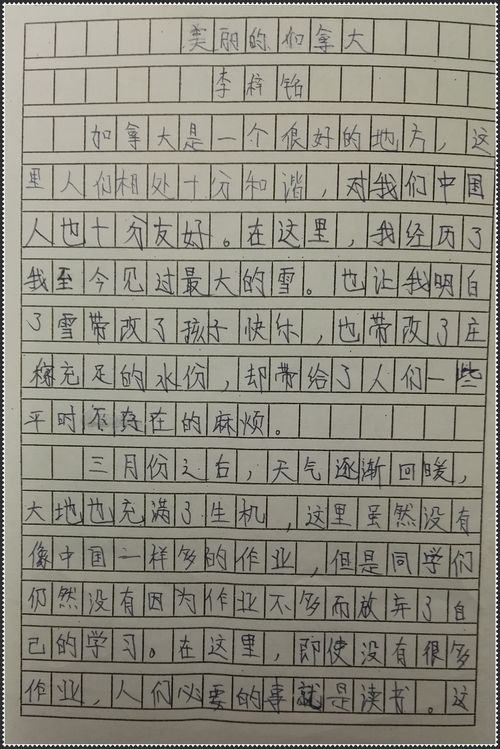 美丽的加拿大
李梓铭
加拿大是一个很好的地方，这
里人们相处十分和谐，对我们中国
人也十分友好。在这里，我经历了
我至今见过最大的雪。也让我明白
了雪带改了孩子快乐，也带改了庄
稼充足的水份，却带给了人们一些
平时不存在的麻烦。
三月份之后，天气逐渐回暖，
大地也充满了生机，这里虽然没有
像中国一样多的作业，但是同学们
仍然没有因为作业不多而放弃了自
己的学习。在这里，即使没有很多
作业，人们必要的事就是读书。这